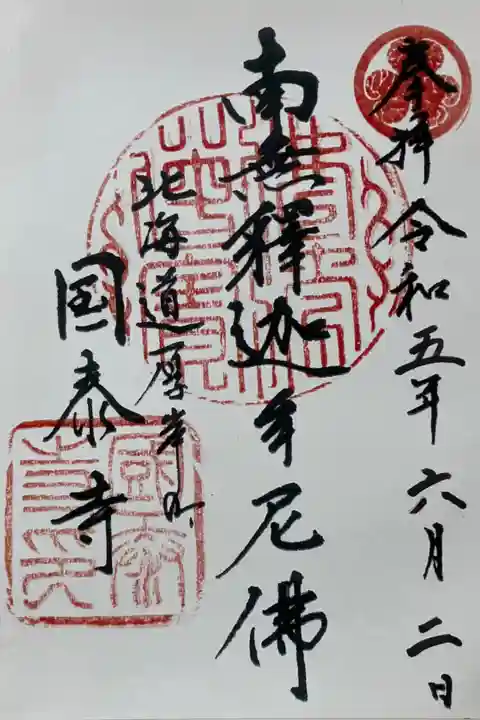 奉拝 令和五年六月二日
南無釋迦牟尼佛
北海道厚岸町
国泰寺
國泰寺印